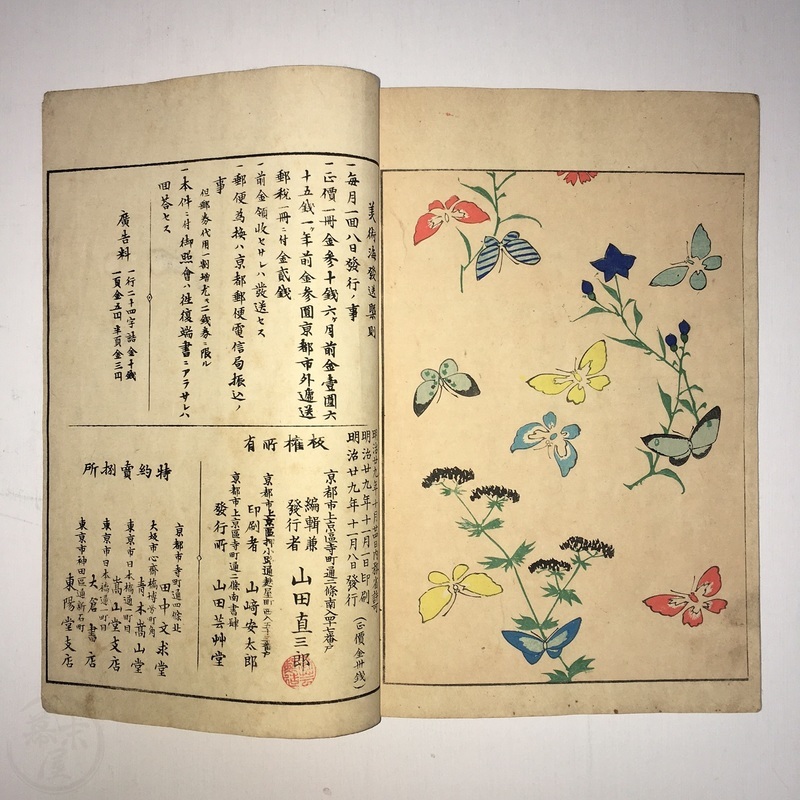 美術海發送畧則
一毎月一回八日發行ノ事
一正價一冊金参十銭六ヶ月前金壹圓六
十五銭一ヶ年前金参圓京都市外遞送
郵税一冊ニ付金貮銭
一前金領收セサレハ發送セス
一郵便為換ハ京都郵便電信局振込ノ
事
但郵券代用一割増尤モ二銭券ニ限ル
一本件ニ付御照會ハ徃復端書ニアラサレハ
回答セス
廣告料
一行二十四字詰金十銭
一頁金五円半頁金三円
明治廿九年十一月一日印刷
明治廿九年十一月八日發行
(正價金卅銭)
板権所有
京都市上京區寺町通二條南入四十七番戸
編輯兼
發行者 山田直三郎
印刷者 山崎安太郎
京都市上京區寺町通二條南書肆
發行所 山田芸艸堂
特約賣捌所
京都市寺町通四條北
田中文求堂
大坂市心斎橋博労町角
青木嵩山堂
東京市日本橋通一町目
嵩山堂支店
東京市日本橋通一町目
大倉書店
東京市神田區通新石町
東陽堂支店